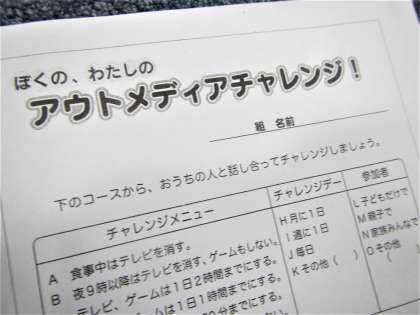 ぼくの、わたしの
アウトメディアチャレンジ！
組 名前
下のコースから、おうちの人と話し合ってチャレンジしましょう。
チャレンジメニュー チャレンジデー 参加者
A 食事中はテレビを消す。
B 夜9時以降はテレビを消す、ゲームもしない。
テレビ、ゲームは1日2時間までにする。
ゲームは1日1時間までにする。
分までにする。
H 月に1日
I 週に1日
J 毎日
K その他（ ）
L 子どもだけで
M 親子で
N 家族みんなで
O その他
（ ）